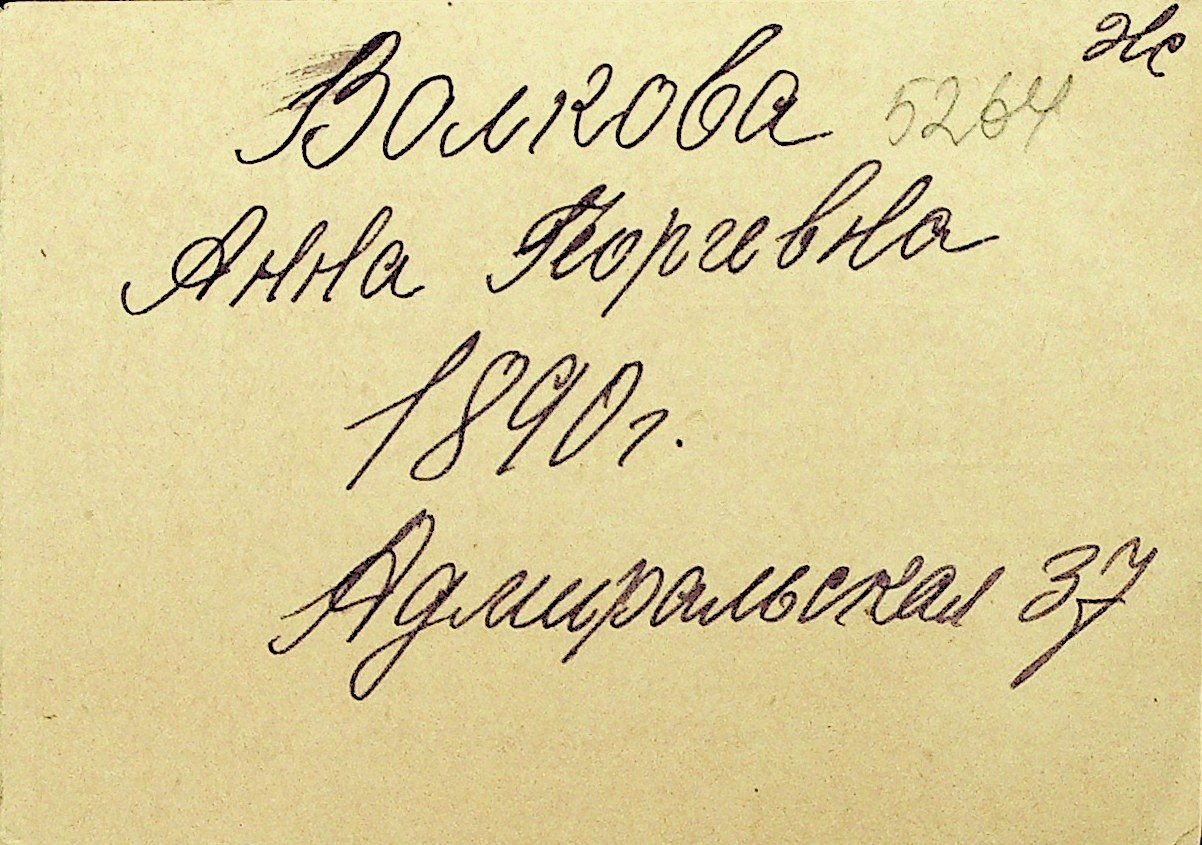 Ж
Волкова 5264
Анна Георгевна
1890 г.
Адмиральская 37